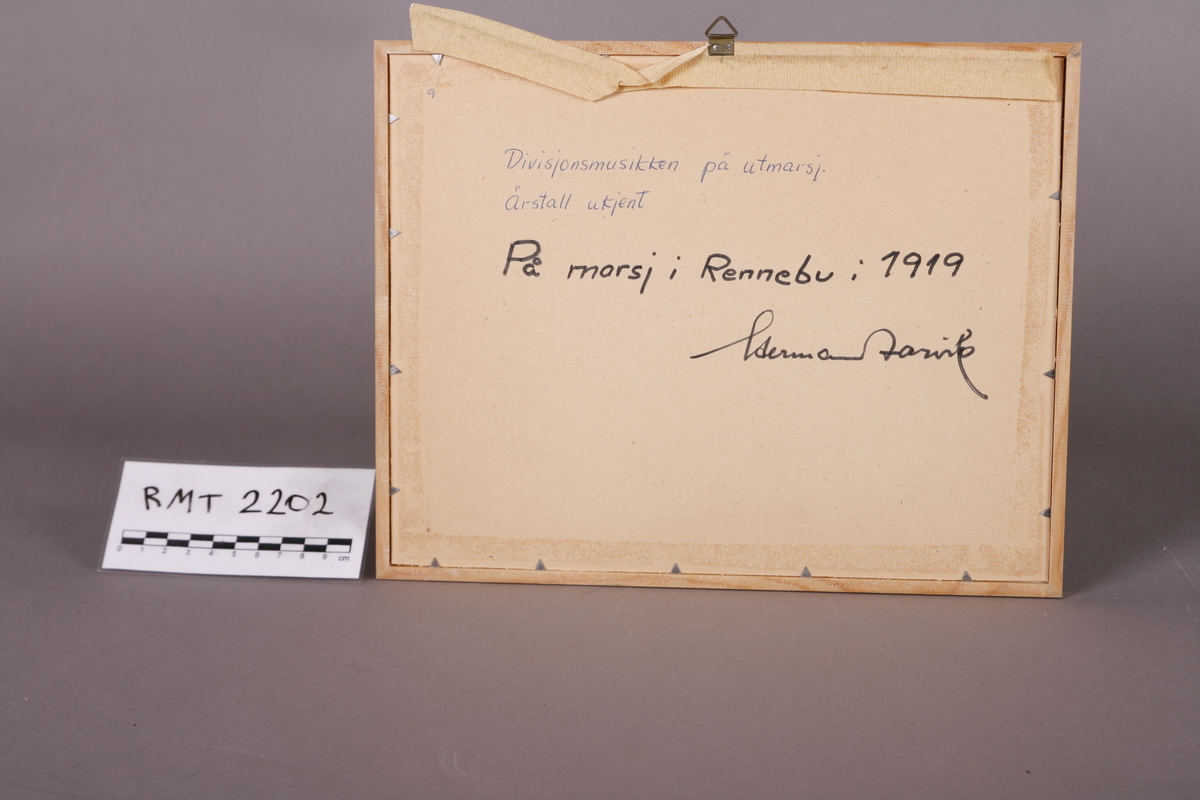 9
Divisjonsmusikken på utmarsj.
Årstall ukjent
På marsj i Rennebu i 1919
Herman
RMT 2202
0 1 2 3 4 5 6 7 8 9 cm